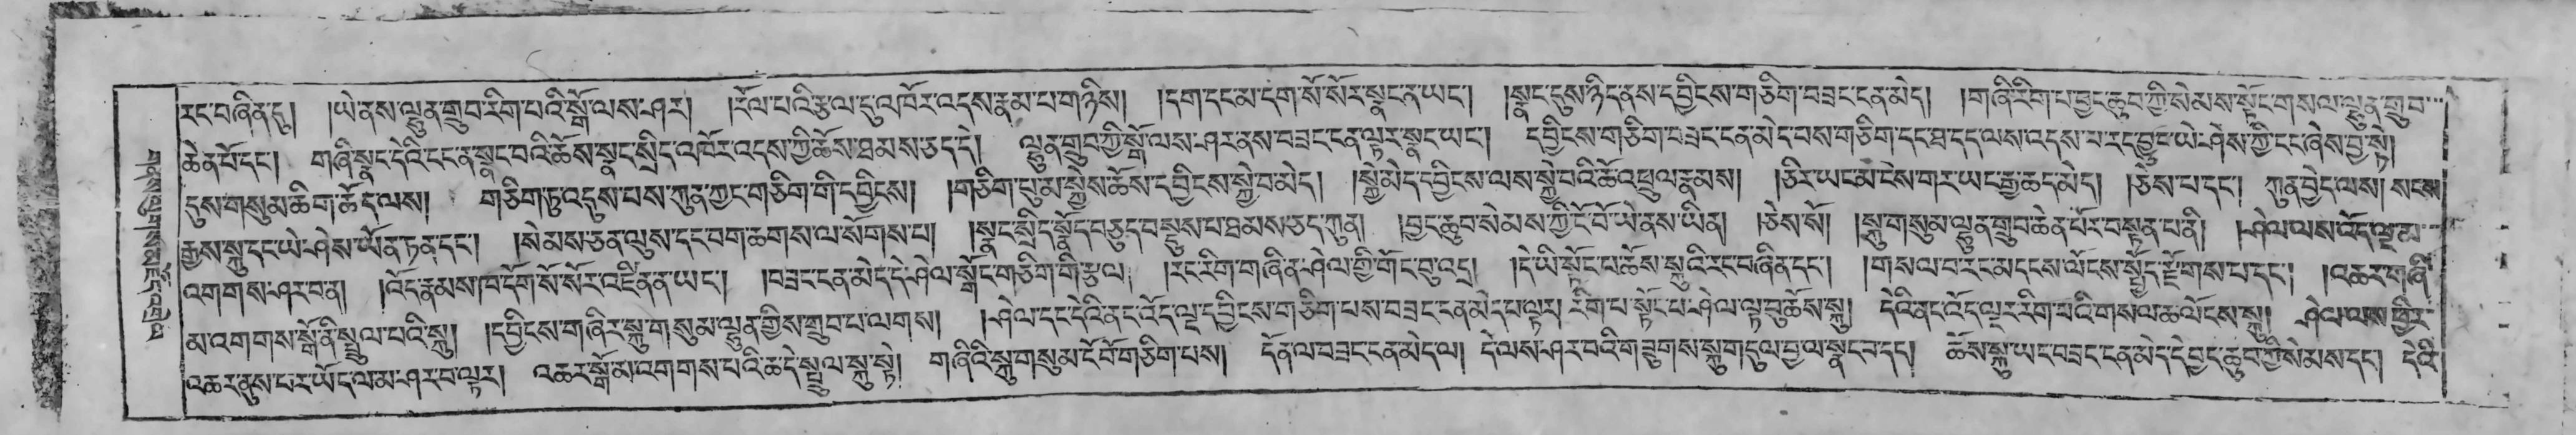 རང་བཞིན་དུ། །ཡེ་ནས་ལྷུན་གྲུབ་རིག་པའི་སྒོ་ལས་ཤར། །རོལ་པའི་རྩལ་དུ་འཁོར་འདས་རྣམ་པ་གཉིས། །དག་དང་མ་དག་སོ་སོར་སྣང་ན་ཡང་། །སྣང་དུས་ཉིད་ནས་དབྱིངས་གཅིག་བཟང་ངན་མེད། །གཞི་རིག་པ་བྱང་ཆུབ་ཀྱི་སེམས་སྟོང་གསལ་ལྷུན་གྲུབ་
ཆེན་པོ་དང་། གཞི་སྣང་དེའི་ངང་ན་སྣང་བའི་ཆོས་སྣང་སྲིད་འཁོར་འདས་ཀྱི་ཆོས་ཐམས་ཅད་དེ། ལྷུན་གྲུབ་ཀྱི་སྒོ་ལས་ཤར་ནས་བཟང་ངན་ལྟར་སྣང་ཡང་། དབྱིངས་གཅིག་བཟང་ངན་མེད་པས་གཅིག་དང་ཐ་དད་ལས་འདས་པ་རང་བྱུང་ཡེ་ཤེས་ཀྱི་ངང་ཞེས་བྱ་སྟེ།
དུས་གསུམ་ཆིག་ཆོད་ལས། གཅིག་ཏུ་འདུས་པས་ཀུན་ཀྱང་གཅིག་གི་དབྱིངས། །གཅིག་པུ་མ་སྐྱེས་ཆོས་དབྱིངས་སྐྱེ་བ་མེད། །སྐྱེ་མེད་དབྱིངས་ལས་སྐྱེ་བའི་ཆོ་འཕྲུལ་རྣམས། །ཅིར་ཡང་མ་ངེས་གར་ཡང་རྒྱ་ཆད་མེད། །ཅེས་པ་དང་། ཀུན་བྱེད་ལས། སངས་
རྒྱས་སྐུ་དང་ཡེ་ཤེས་ཡོན་ཏན་དང་། །སེམས་ཅན་ལུས་དང་བག་ཆགས་ལ་སོགས་པ། །སྣང་སྲིད་སྣོད་བཅུད་བསྡུས་པ་ཐམས་ཅད་ཀུན། །བྱང་ཆུབ་སེམས་ཀྱི་ངོ་བོ་ཡེ་ནས་ཡིན། །ཅེས་སོ། །སྐུ་གསུམ་ལྷུན་གྲུབ་ཆེན་པོར་བསྟན་པ་ནི། །ཤེལ་ལས་འོད་ལྔ་མ་
འགགས་ཤར་བ་ན། །འོད་རྣམས་ཁ་དོག་སོ་སོར་འཛིན་ན་ཡང་། །བཟང་ངན་མེད་དེ་ཤེལ་སྒོང་གཅིག་གི་རྩལ། །རང་རིག་གཞི་ནི་ཤེལ་གྱི་གོང་བུ་འདྲ། །དེ་ཡི་སྟོང་པ་ཆོས་སྐུའི་རང་བཞིན་དང་། །གསལ་བ་རང་མདངས་ལོངས་སྤྱོད་རྫོགས་པ་དང་། །འཆར་གཞི་
མ་འགགས་སྒོ་ནི་སྤྲུལ་པའི་སྐུ། །དབྱིངས་གཞིར་སྐུ་གསུམ་ལྷུན་གྱིས་གྲུབ་པ་ལགས། །ཤེལ་དང་དེའི་ནང་འོད་ལྔ་དབྱིངས་གཅིག་པས་བཟང་ངན་མེད་པ་ལྟར། རིག་པ་སྟོང་པ་ཤེལ་ལྟ་བུ་ཆོས་སྐུ། དེའི་ནང་འོད་ལྟར་རིག་པའི་གསལ་ཆ་ལོངས་སྐུ། ཤེལ་ལས་ཕྱིར་
འཆར་ནུས་པར་ཡོད་ལ་མ་ཤར་བ་ལྟར། འཆར་སྒོ་མ་འགགས་པའི་ཆ་དེ་སྤྲུལ་སྐུ་སྟེ། གཞིའི་སྐུ་གསུམ་ངོ་བོ་གཅིག་པས། དོན་ལ་བཟང་ངན་མེད་ལ། དེ་ལས་ཤར་བའི་གཟུགས་སྐུ་གདུལ་བྱ་ལ་སྣང་བ་དང་། ཆོས་སྐུ་ཡང་བཟང་ངན་མེད་དེ་བྱང་ཆུབ་ཀྱི་སེམས་དང་། དེའི་